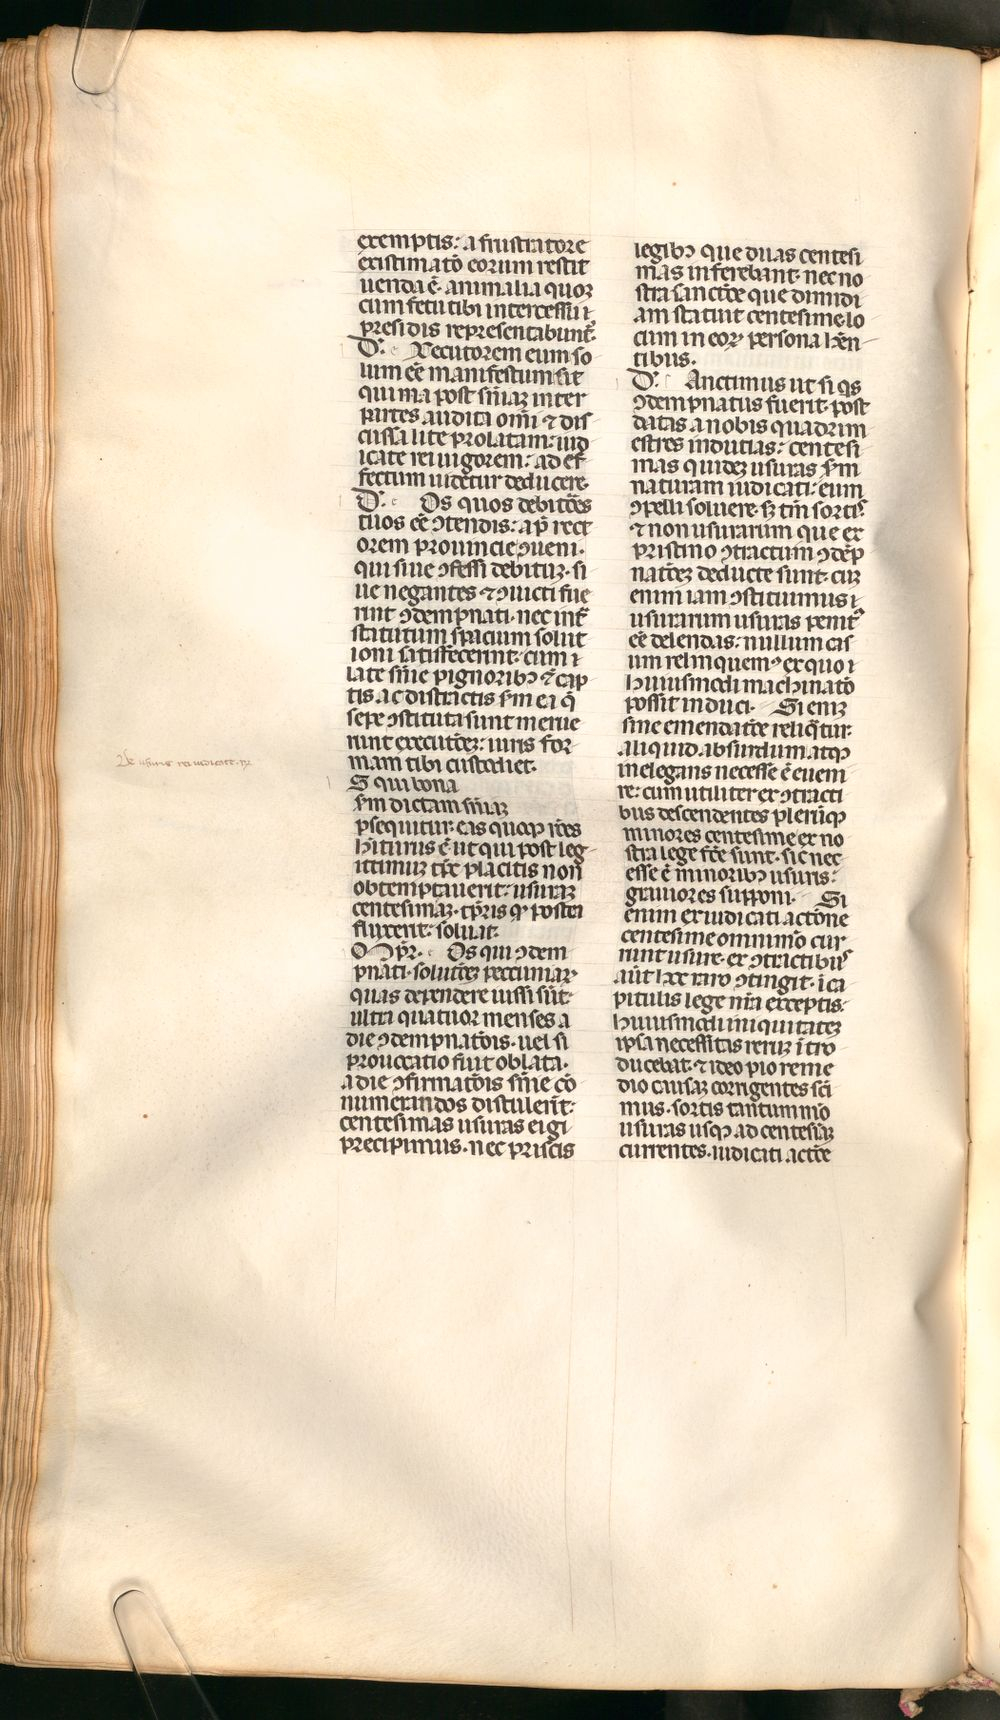 exemptis: a frustratore
existimatō eorum restit
uenda ē. animalia quoꝝ
cum fetu tibi intercessu ı
presidis representabunt᷑.
D᷑. e xecutorem eum so
lum eē manifestum sit
qui ma post sn̄iaꝫ inter
partes audita om̄i ⁊ dis
cussa lite prolatam: iud
icate rei uigorem: ad ef
fectum uidetur deducere.
D᷑. e Os quos debitōes
tuos eē ꝯtendis: ap̄ rect
orem prouincie ꝯueni.
qui siue ꝯfessi debituꝫ. si
ue negantes ⁊ ꝯuicti fue
rint ꝯdempnati. nec int̄
statutum spacium solut
ioni satisfecerint: cum ı
late sn̄ie pignoribꝫ ⁊ cap
tis ac distractis sm̄ ea q̄
sepe ꝯstituta sunt merue
runt executōeꝫ: iuris for
mam tibi custodiet.
De usuris rei iudicate. ꝶ.
S qui bona
sm̄ dictam sn̄iaꝫ
ꝑsequitur. eas quoqꝫ rōes
hiturus ē. ut qui post leg
ittimuꝫ tp̄c placitis non
obtemptauerit: usuraꝫ
centesimaꝫ. tp̄ris qͦ postea
fluxerit: soluat.
Os qui ꝯdem
pnati. solutōeꝫ pecuniaꝝ
quas dependere iussi sūt.
ultra quatuor menses a
die ꝯdempnatōis. uel si
prouocatio fiut oblata.
a die ꝯfirmatōis sn̄ie cō
numerandos distulerit:
centesimas usuras eigi
precipimus. nec priscis
legibꝫ que duas centesi
mas inferebant. nec no
stra sanctōe que dimidi
am statiut centesime. lo
cum in eoꝝ persona hēn
tibus.
D᷑. Ancimus ut si qs
ꝯdempnatus fuerit. post
datas a nobis quadrim
estres indutias: centesi
mas quideꝫ usuras sm̄
naturam iudicati: eum
ꝯpelli soluere. sꝫ tm̄ sortis
⁊ non usurarum que ex
pristino ꝯtractum ꝯdēp
natōeꝫ deducte sunt. cuꝫ
enim iam ꝯstituimus ı
usurarum usuras penitꝰ
eē delendas: nullum cas
um relinquemꝰ ex quo ı
huiusmodi machinatō
possit induci. Si eniꝫ
sine emendatōe reliq̄tur:
aliquid. absurdum atqꝫ
inelegans necesse ē eueni
re: cum utiliter ex ꝯtracti
bus descendentes pleruqꝫ
minores centesime ex no
stra lege fcē sunt. sic nec
esse ē minoribꝫ usuris:
grauiores supponi. Si
enim ex iudicati actōne
centesime ommimō cur
runt usure. ex ꝯtractibus
aūt hec raro ꝯtingit. ī ca
pitulis lege nr̄a exceptis.
huiusmodi iniquitateꝫ
ipsa necessitas reruꝫ ītro
ducebat. ⁊ ideo pio reme
dio causaꝫ corrigentes sci
mus. sortis tantummō
usuras usqꝫ ad centesimaꝫ
currentes. iudicati actōe